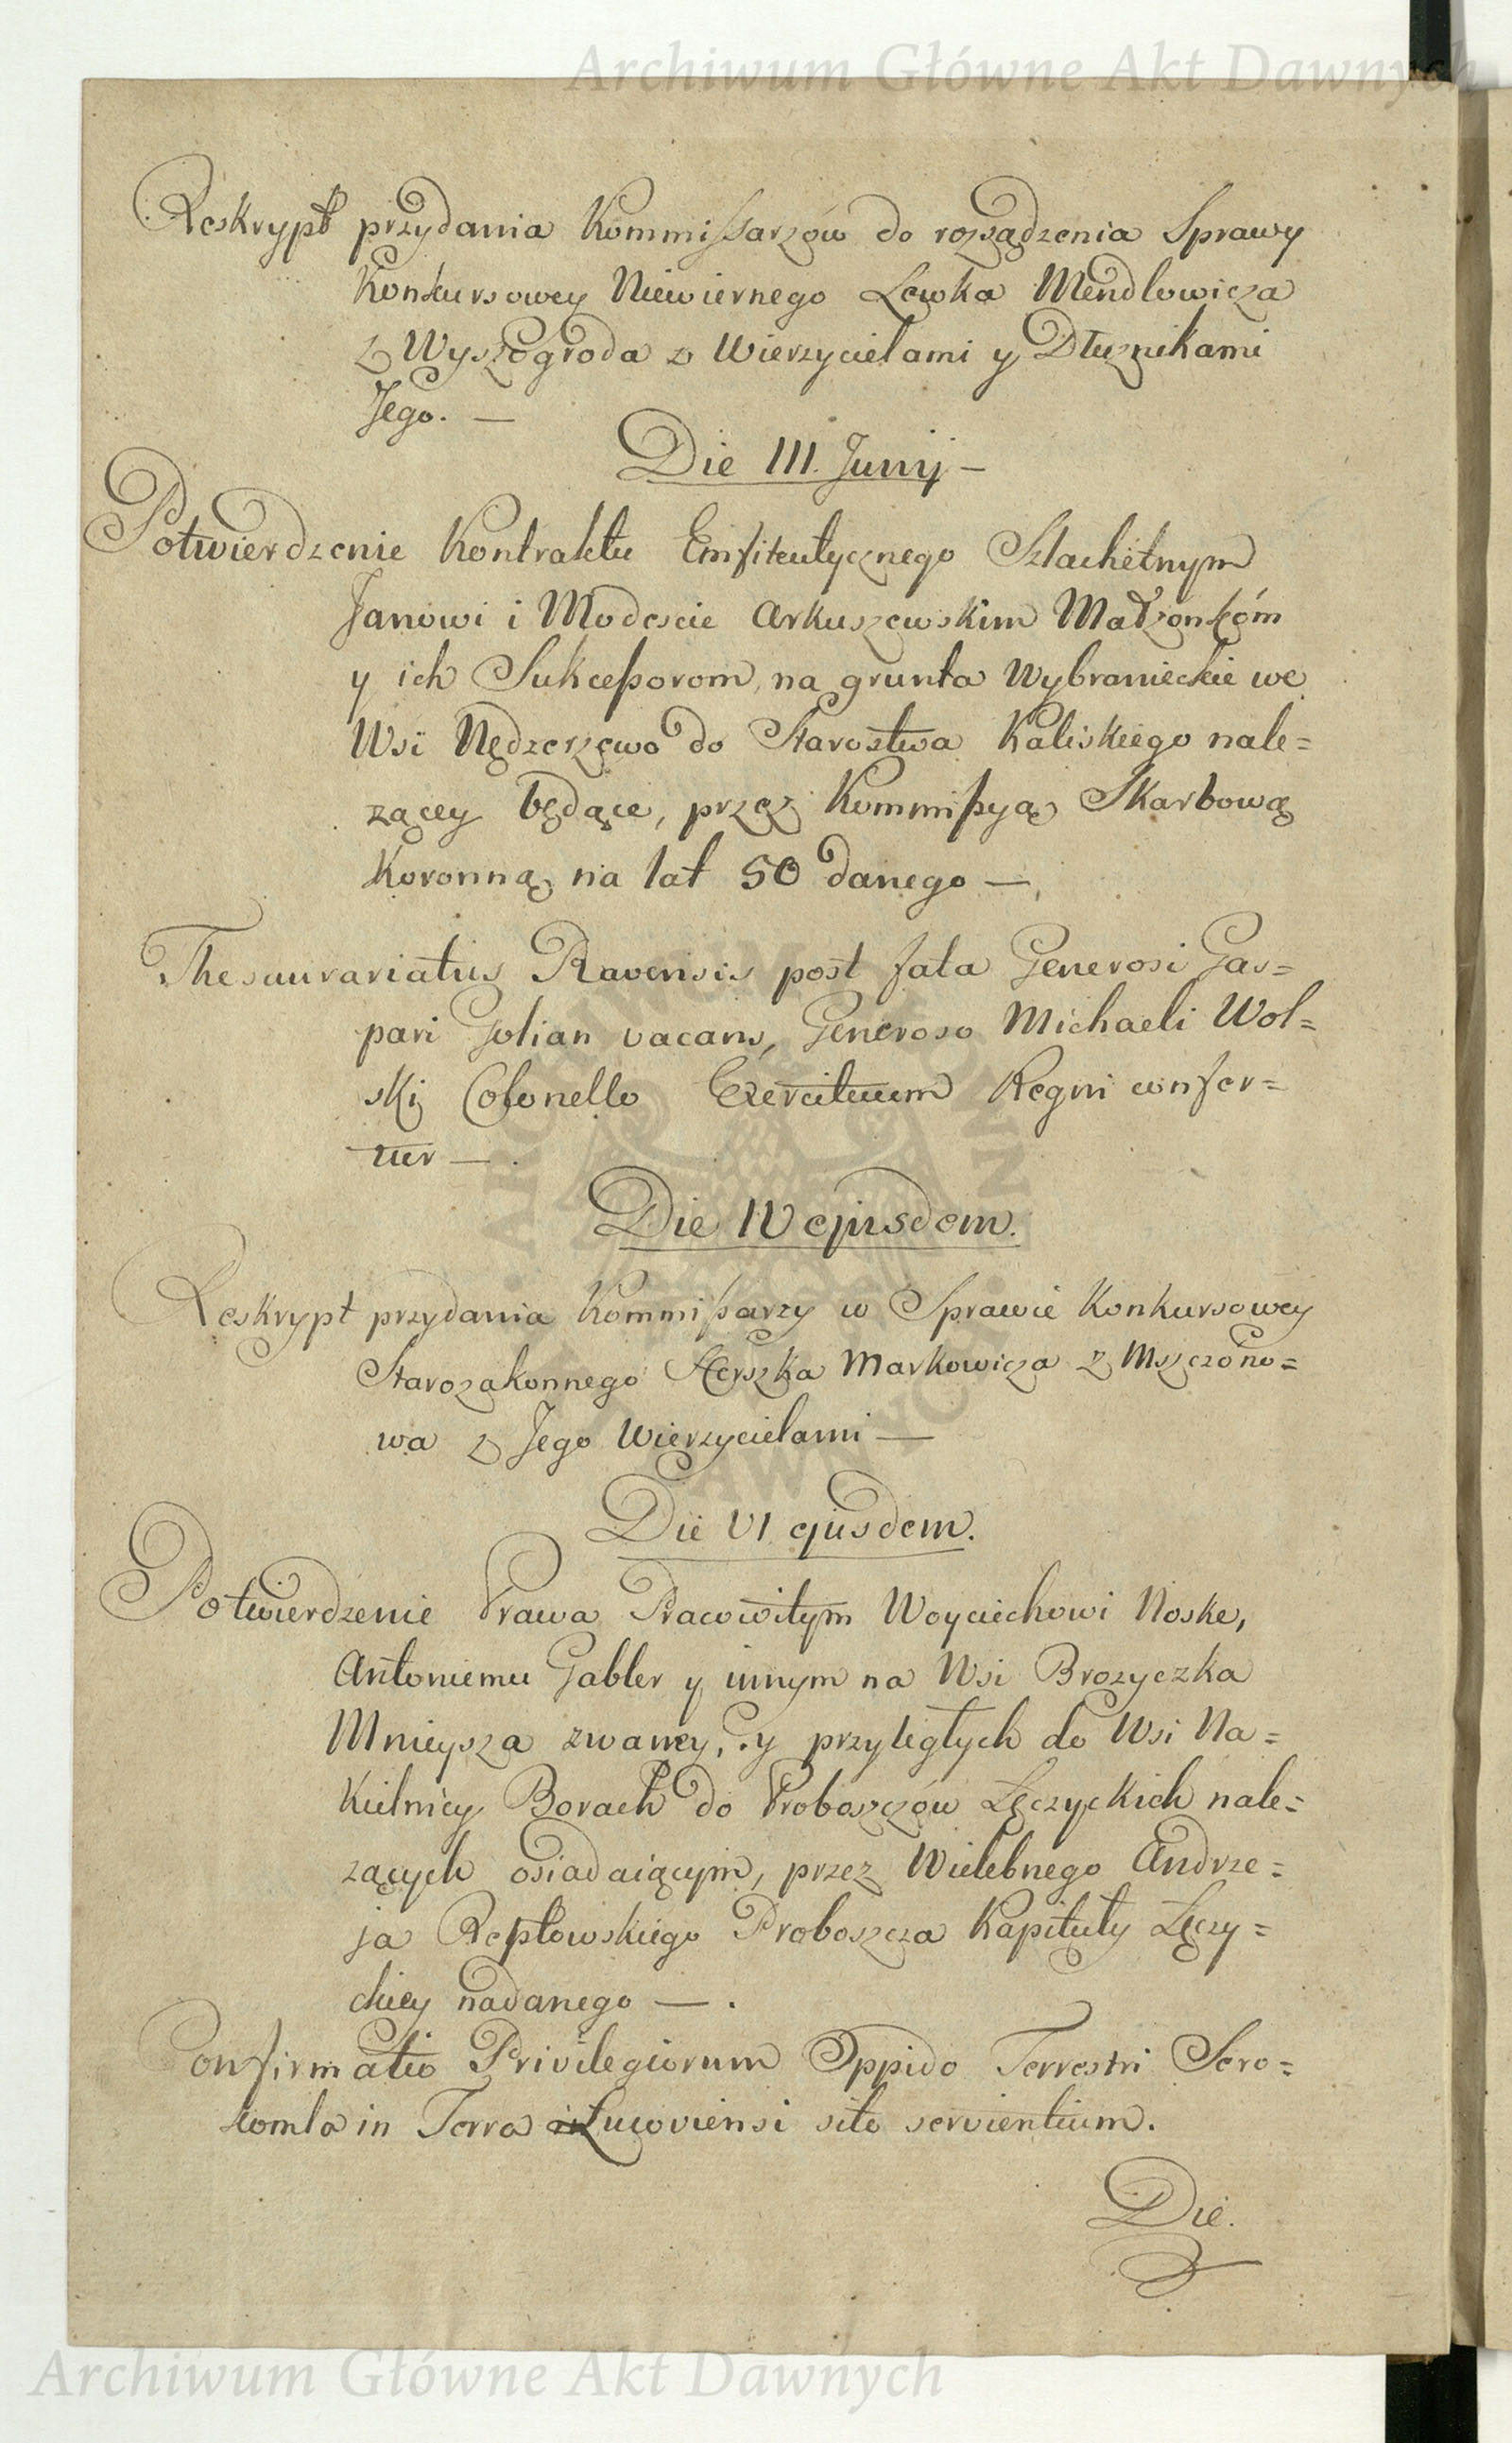 Archiwum Główne Akt Dawnych
Reskrypt przydania Kommissarzów do rozsądzenia Sprawy
Konkursowey Niewiernego Lewka Mendlowicza
z Wyszogroda z Wierzycielami y Dłuznikami
Jego. —
Die III. Junij —
Potwierdzenie Kontraktu Emfiteutycznego Szlachetnym
Janowi i Modescie Arkuszewskim Małżonkóm
y ich Sukcessorom, na grunta Wybranieckie we
Wsi Nędzerzewo do Starostwa Kaliskiego nale=
zącey będące, przez Kommissyą Skarbową
Koronną na lat 50 danego —
Thesaurariatus Ravensis post fata Generosi Gas=
pari Golian vacans, Generoso Michaeli Wol=
skij Colonello Exercituum Regni confer=
tur —.
Die IV ejusdem.
Reskrypt przydania Kommissarzy w Sprawie Konkursowey
Starozakonnego Herszka Markowicza z Mszczono=
wa z Jego Wierzycielami —
Die VI ejusdem.
Potwierdzenie Prawa Pracowitym Woyciechowi Noske,
Antoniemu Gabler y innym na Wsi Brozyczka
Mnieysza zwaney, y przyległych do Wsi Na=
kielnicy Borach do Proboszczów Łęczyckich nale=
zących osiadaiącym, przez Wielebnego Andrze=
ja Reptowskiego Proboszcza Kapituły Łęczy=
ckiey nadanego —.
Confirmatio Privilegiorum Oppido Terrestri Sero=
komla in Terra Lucoviensi sito servientium.
Die.
Archiwum Główne Akt Dawnych